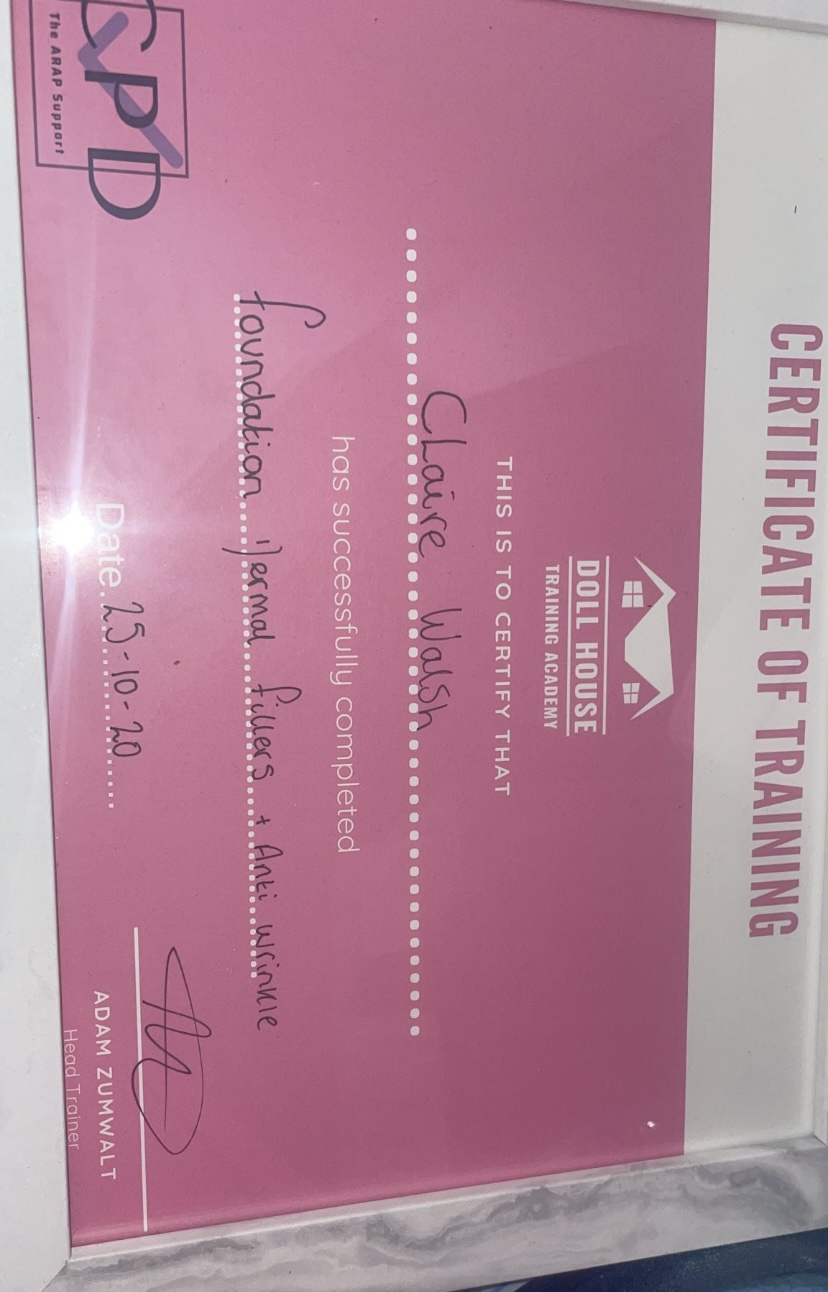 CERTIFICATE OF TRAINING
DOLL HOUSE
TRAINING ACADEMY
THIS IS TO CERTIFY THAT
Claire Walsh
has successfully completed
foundation Dermal fillers + Anti wrinkle
Date 25-10-20
ADAM ZUMWALT
Head Trainer
CPD
The ARAP Support